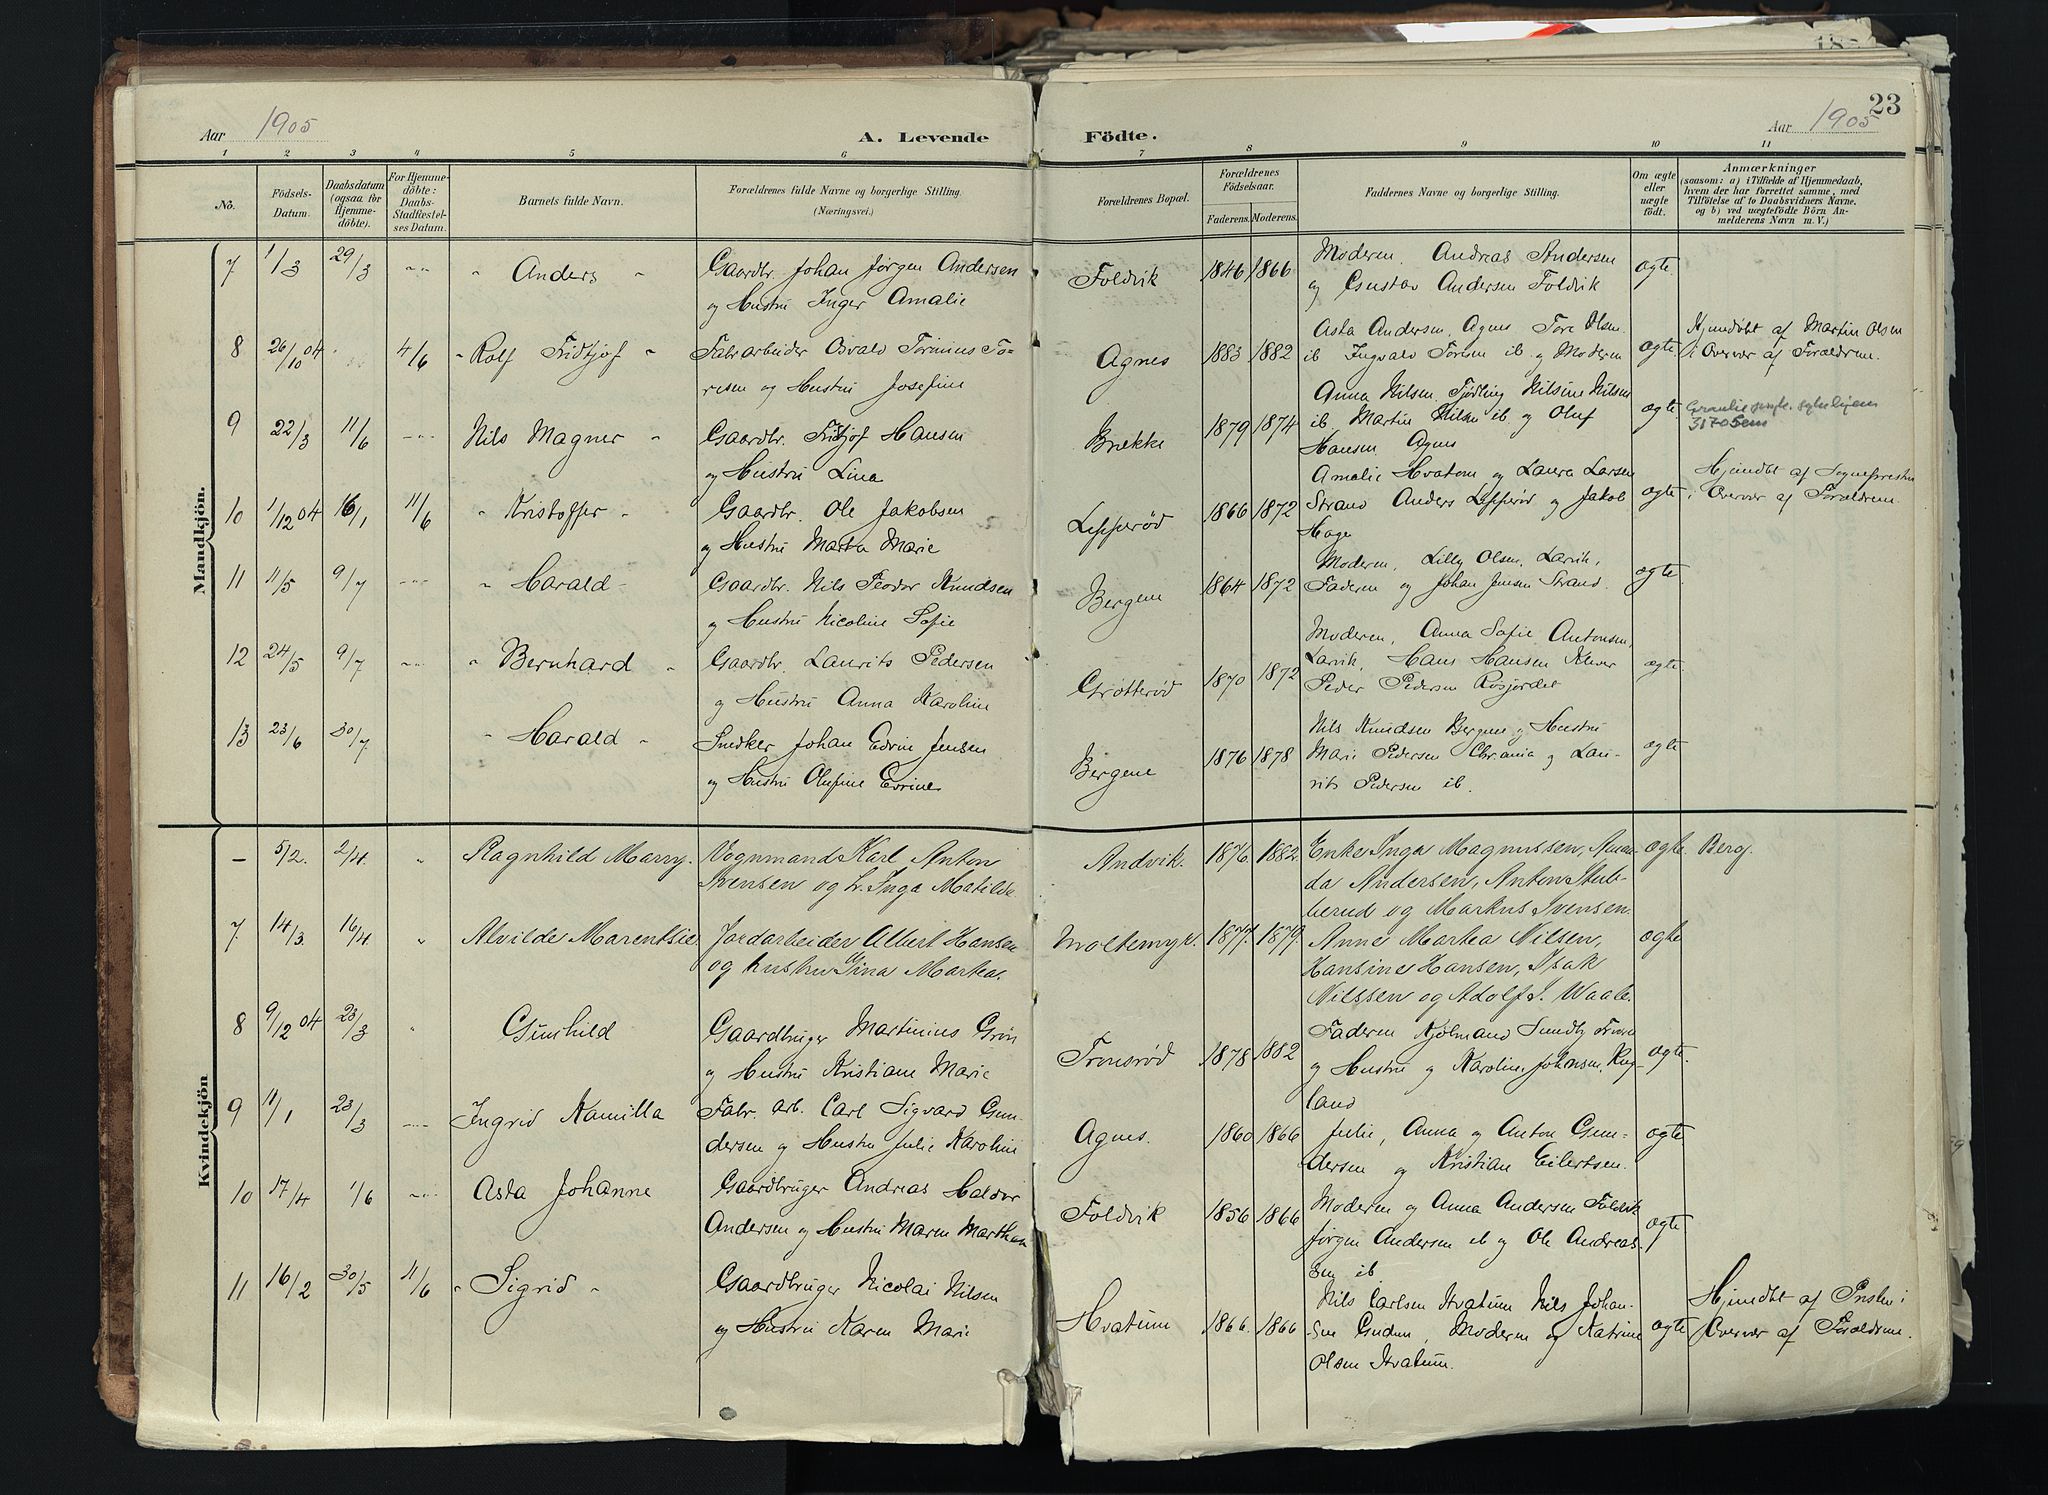 23
Aar 1905
A. Levende Födte.
Aar 1905
1 2 3 4 5 6 7 8 9 10 11
No.
Födsels-Datum.
Daabsdatum (ogsaa for Hjemmedöbte).
For Hjemmedöbte: Daabs-Stadfæstelses Datum.
Barnets fulde Navn.
Forældrenes fulde Navne og borgerlige Stilling.
(Næringsvei.)
Forældrenes Bopæl.
Forældrenes Födselsaar.
Faderens. Moderens.
Faddernes Navne og borgerlige Stilling.
Om ægte eller uægte födt.
Anmærkninger
(saasom: a) i Tilfælde af Hjemmedaab, hvem der har forrettet samme, med Tilföielse af to Daabsvidners Navne. og b) ved uægtefödte Börn Anmelderens Navn m. V.)
Mandkjön.
7 1/3 29/3 Anders
Gaardbr. Johan Jørgen Andersen
og Hustru Inger Amalie
Foldvik 1846 1866
Moderen, Andreas Andersen
og Gustav Andersen Foldvik
ægte
8 26/10 04 4/6 Rolf Fridtjof
Fabr.arbeider Osvald Torinius To-
resen og Hustru Josefine
Agnes 1883 1882
Asta Andersen, Agnes Tore Olsen
ib Ingvald Torlsen ib og Moderen
ægte
Hjemdøbt af Martin Olsen
i Overvær af Forældrene.
9 22/3 11/6 Nils Magner
Gaardbr. Fritjof Hansen
og Hustru Lina
Brække 1879 1874
Anna Nilsen, Tjødling Nilsine Nilsen
ib, Martin Nilsen ib og Oluf
Hansen Agnes
ægte
3170 Sem
10 1/12 04 16/1 11/6 Kristoffer
Gaardbr. Ole Jakobsen
og Hustru Marta Marie
Lepperød 1866 1872
Amalie Hvatum og Laura Larsen
Strand Anders Lepperød og Jakob
Hage
ægte
Hjemdøbt af Sognepresten
i Overvær af Forældrene.
11 11/5 9/7 Harald
Gaardbr. Nils Teodor Knudsen
og Hustru Nicoline Sofie
Bergene 1864 1872
Moderen, Lilly Olsen, Larvik,
Faderen og Johan Jensen Strand.
ægte
12 24/5 9/7 Bernhard
Gaardbr. Laurits Pedersen
og Hustru Anna Karoline
Grøtterød 1870 1872
Moderen, Anna Sofie Antonsen,
Larvik, Hans Hansen Klever
Peder Pedersen Røsjordet
ægte
13 23/6 30/7 Harald
Snedker Johan Edvin Jensen
og Hustru Olufine Evrine
Bergene 1876 1878
Nils Knudsen Bergene og Hustru
Marie Pedersen Chr.ania og Lau-
rits Pedersen ib.
ægte
Kvindekjön
– 5/2. 2/4. Ragnhild Marry.
Vognmand Karl Anton
Ivensen og h. Inga Matilde
Andvik. 1876. 1882.
Enke Inga Magnussen, Aman-
da Andersen, Anton Stub-
berud og Markus Ivensen.
ægte Berg.
7. 14/3. 16/4 Alvilde Marentsie
Jordarbeider Albert Hansen
og hustru Gina Martea.
Moltemyr. 1877. 1879.
Anne Martea Nilsen,
Hansine Hansen, Isak
Nilssen og Adolf J. Waale.
ægte
8 9/12 04 23/3 Gunhild
Gaardbruger Martinius Grøn
og Hustru Kristiane Marie
Tronsrød 1878 1882
Faderen Kjøbmand Sundby
og Hustru og Karoline Johansen, Rug-
land
ægte.
9 11/1 23/3 Ingrid Kamilla
Fabr. arb. Carl Sigvard Gun-
dersen og Hustru Julie Karoline
Agnes. 1860 1866
Julie, Anna og Anton Gun-
dersen og Kristian Eilertsen.
ægte
10 17/4 1/6 Asta Johanne
Gaardbruger Andreas Haldor
Andersen og Hustru Maren Marthea
Foldvik 1856 1866
Moderen og Anna Andersen Foldvik
Jørgen Andersen ib og Ole Andreas-
sen ib.
ægte
11 16/2 30/5 11/6 Sigrid
Gaardbruger Nicolai Nilsen
og Hustru Karen Marie
Hvatum 1866. 1866
Nils Carlsen Hvatum Nils Johan-
sen Gudem, Moderen og Katrine
Olsen Hvatum.
ægte
Hjemdøbt af Presten i
Overvær af Forældrene.